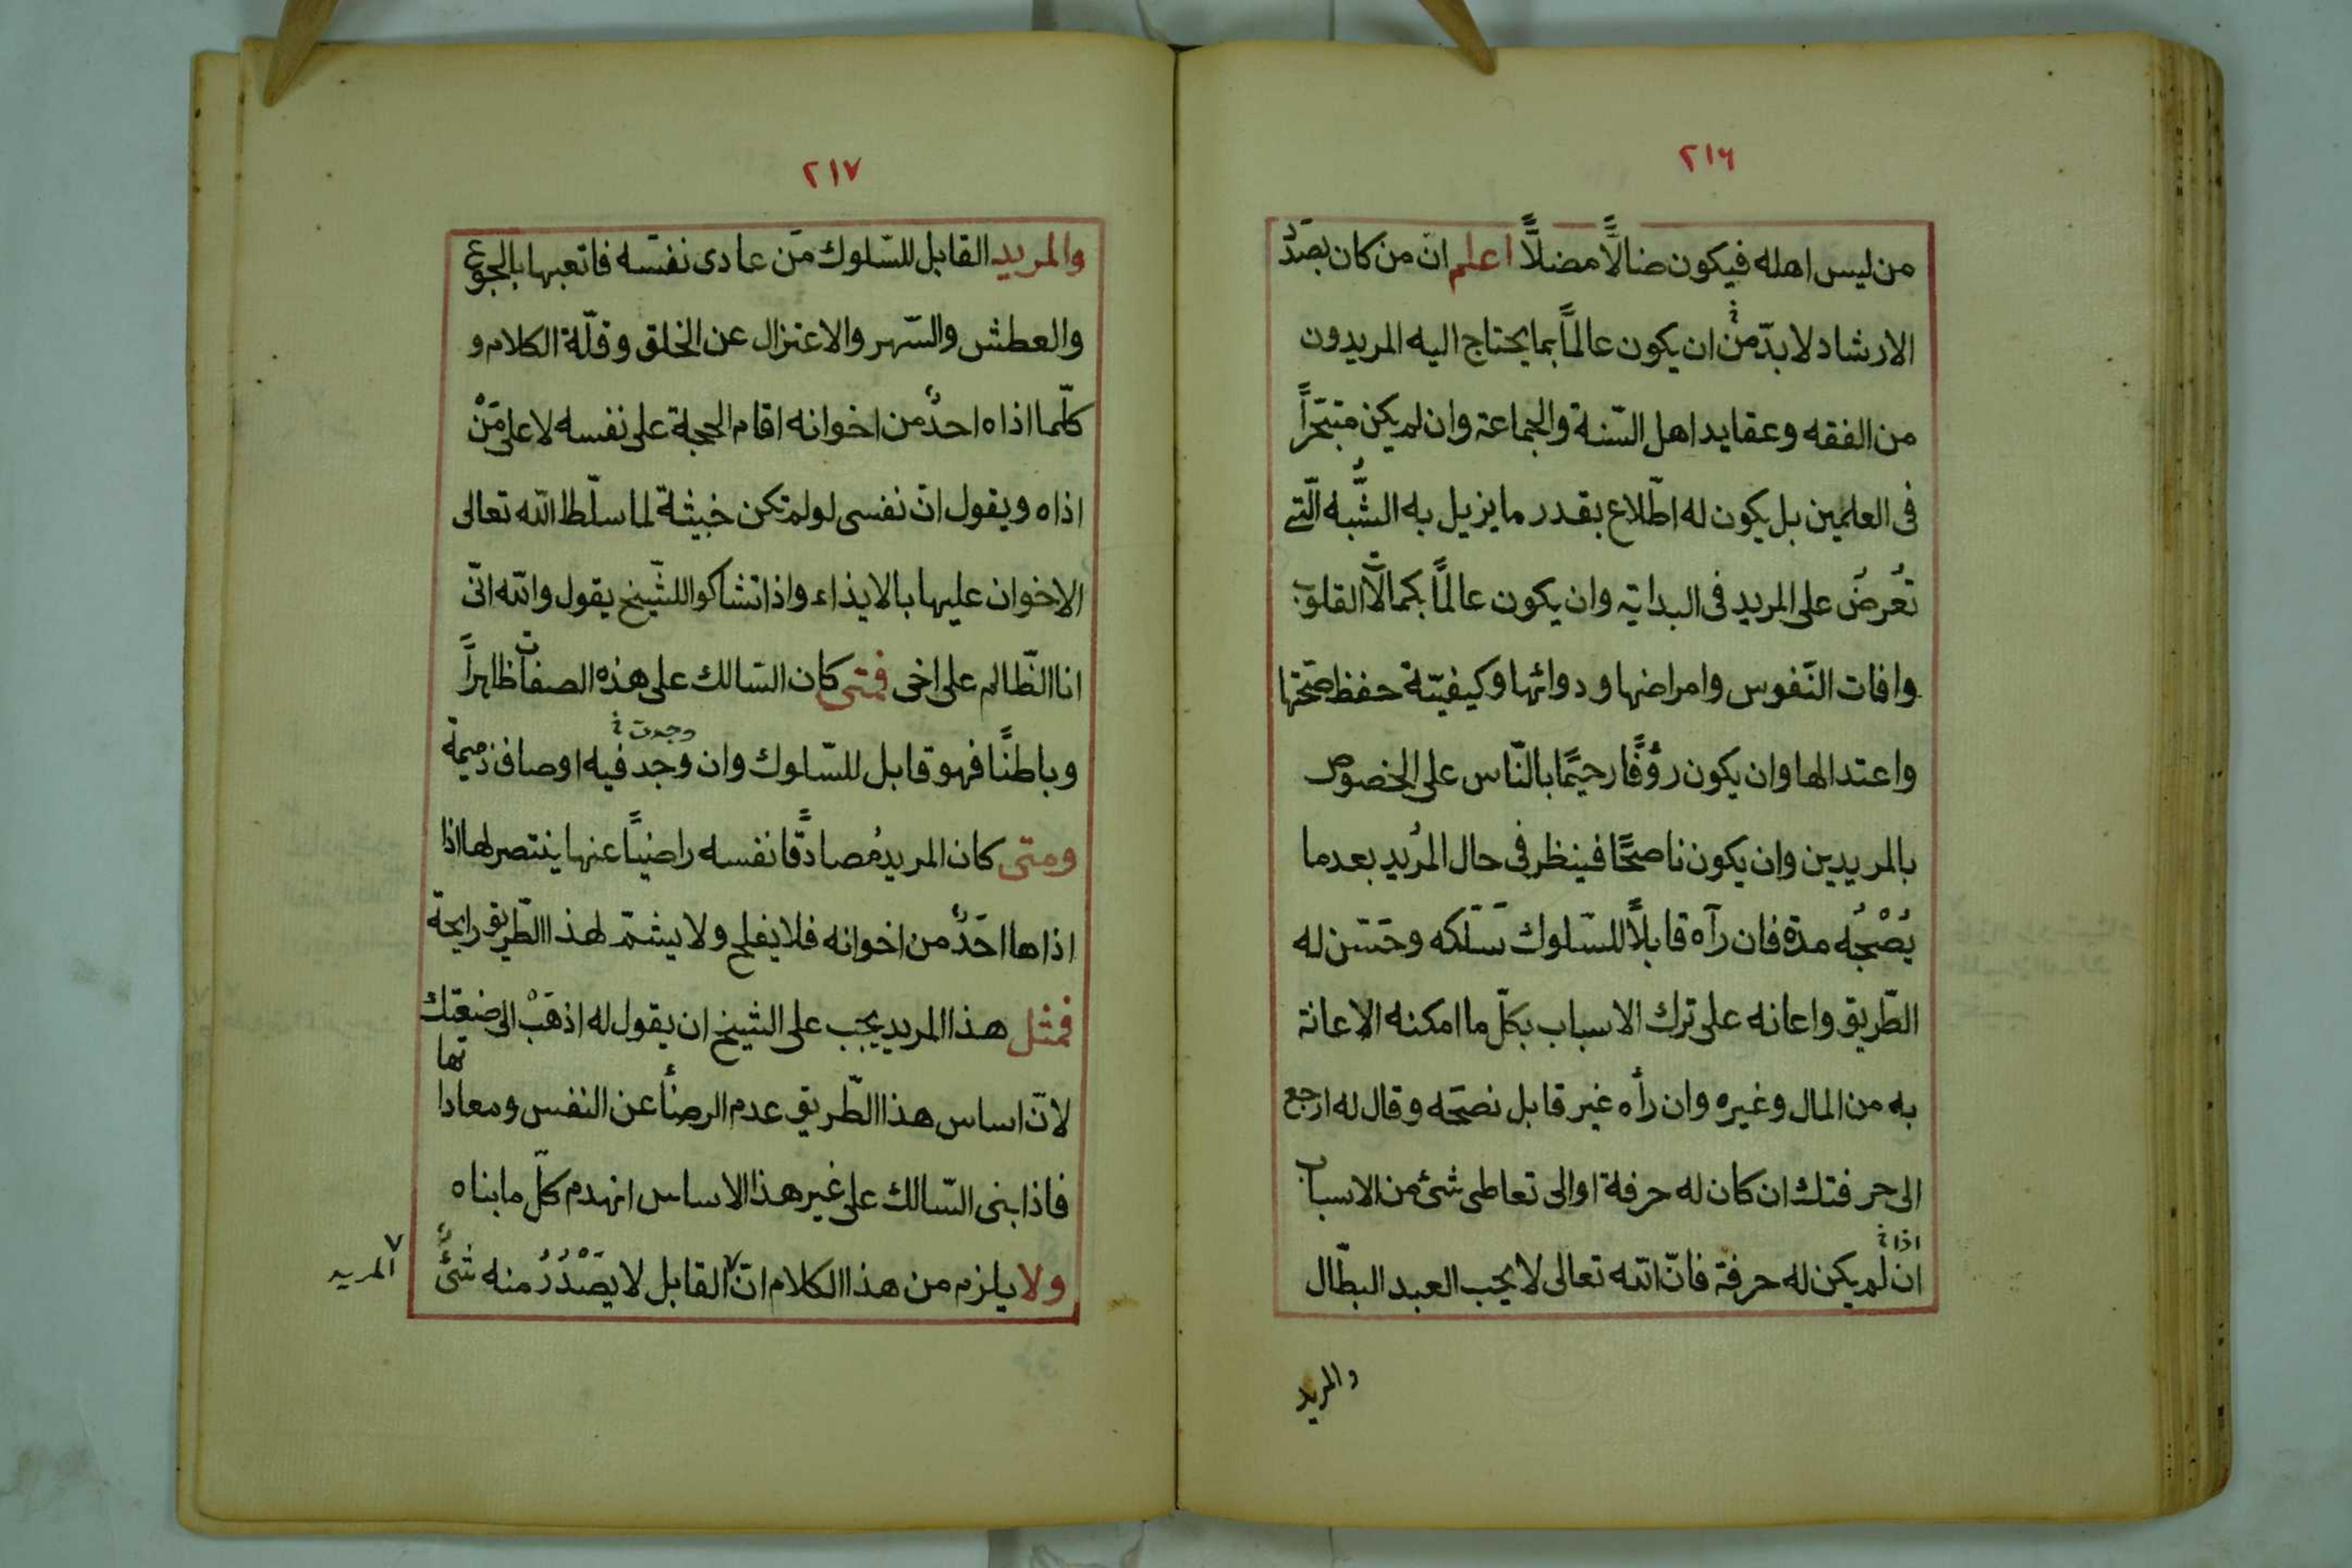 ٢١٦
من ليس اهله فيكون ضالاًّ مضلاًّ اعلم انّ من كان بصَدَد
الارشاد لا بدّ منْ ان يكون عالماً بما يحتاج اليه المريدون
من الفقه وعقايد اهل السّنة والجماعة وان لم يكن متبحّراً
فى العلمين بل يكون له اطّلاع بقدر ما يزيل به الشُّبه الّتى
تُعرضُ على المريد فى البداية وان يكون عالماً بكمالات القلوب
وافات النّفوس وامراضها ودوائها وكيفيّة حفظ صحّتها
واعتدالها وان يكون رؤُفًا رحيمًا بالنّاس على الخصوص
بالمريدين وان يكون ناصحًا فينظر فى حال المُريد بعد ما
يُصْحبُه مدة فان رآه قابلاً للسّلوك سَلّكه وحَسّن له
الطّريق واعانه على ترك الاسباب بكلّ ما امكنه الاعانة
به من المال وغيره وان رأه غير قابل نصَحَه وقال له ارجع
الى حرفتك ان كان له حرفة او الى تعاطى شئ من الاسباب
اذا
ان لم يكن له حرفة فانّ الله تعالى لا يحب العبد البطّال
والمريد
٢١٧
والمريد القابل للسّلوك مَن عادى نفسَه فاتعبها بالجوع
والعطش والسّهر والاعتزال عن الخلق وقلّة الكلام و
كلّما اذاه احدٌ من اخوانه اقام الحجة على نفسه لا على مَنْ
اذاه ويقول انّ نفسى لو لم تكن خبيثة لما سلّط الله تعالى
الاخوان عليها بالايذاء واذا تشاكوا للشّيخ يقول والله انّى
انا الظّالم على اخى فمتى كان السّالك على هذه الصفات ظاهراً
وجدت
وباطنًا فهو قابل للسّلوك وان وجد فيه اوصاف ذميمة
ومتى كان المريد مُصادقًا نفسه راضيًا عنها ينتصر لها اذا
اذاها احَدٌ من اخوانه فلا يفلح ولا يشتمّ لهذا الطّريق رايحة
فمثل هذا المريد يجب على الشيخ ان يقول له اذهَبْ الى ضيعتك
لانّ اساس هذا الطّريق عدم الرضأ عن النفس ومعاداتها
فاذا بنى السّالك على غير هذا الاساس انهدم كلّ ما بناه
ولا يلزم من هذا الكلام انّ ٧ القابل لا يَصْدُرُ منه شئٌ
٧ المريد